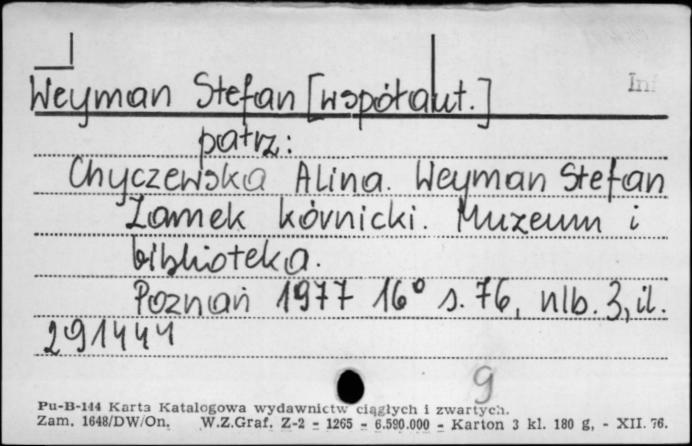 Weyman Stefan [współaut.]
patrz:
Chyczewska Alina. Weyman Stefan
Zamek kórnicki. Muzeum i
biblioteka.
Poznań 1977 16° s. 76, nlb. 3, il.
291444
9
Pu-B-144 Karta Katalogowa wydawnictw ciągłych i zwartych.
Zam. 1648/DW/On. W.Z.Graf. Z-2 - 1265 - 6.590.000 - Karton 3 kl. 180 g, - XII. 76.